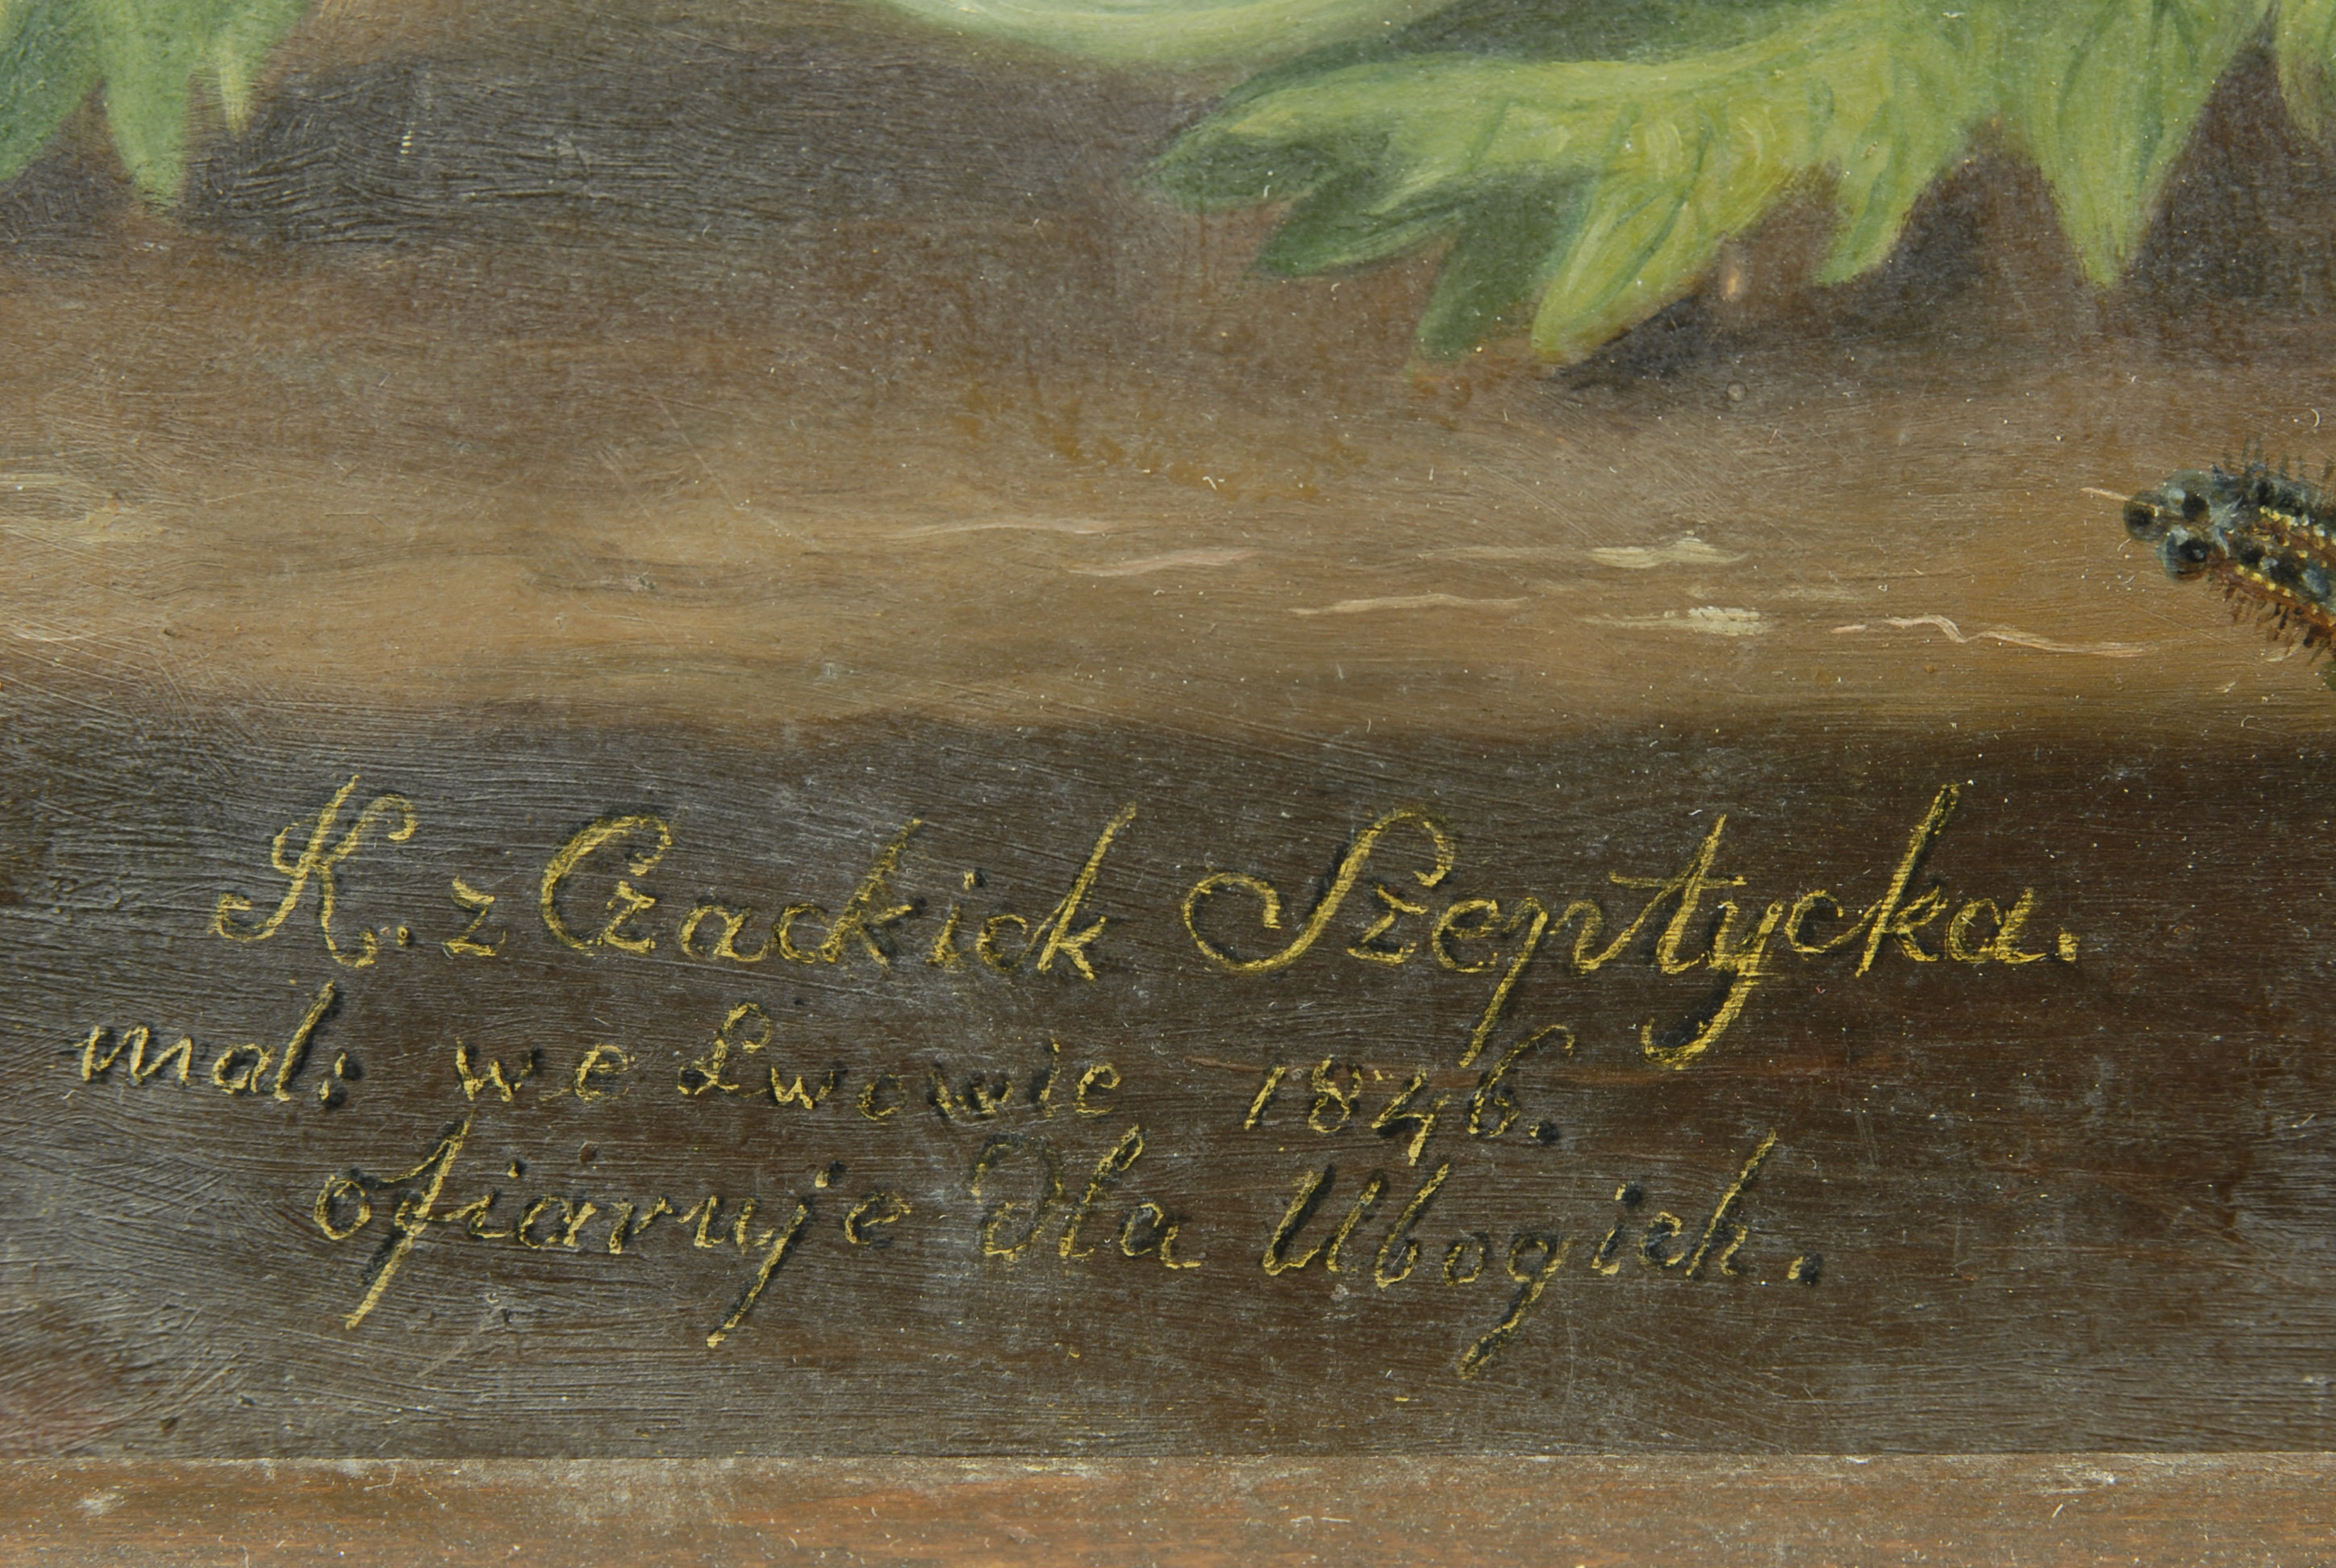 K. z Czackich Szeptycka.
mal: we Lwowie 1846.
ofiaruje dla Ubogich.